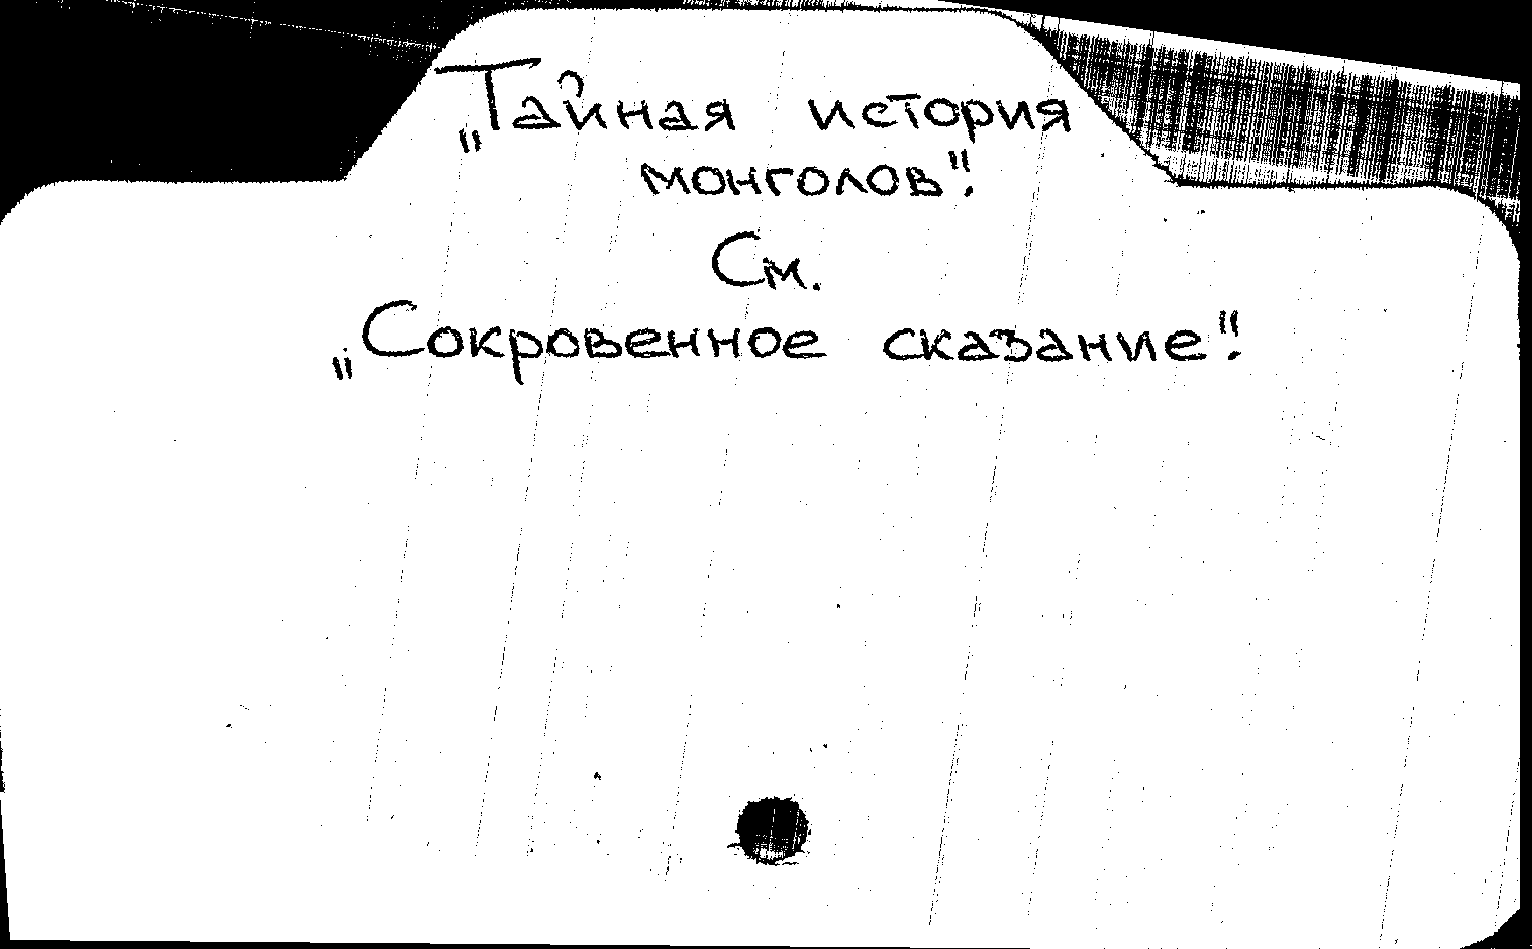 „Тайная история
монголов".
См.
„Сокровенное сказание".